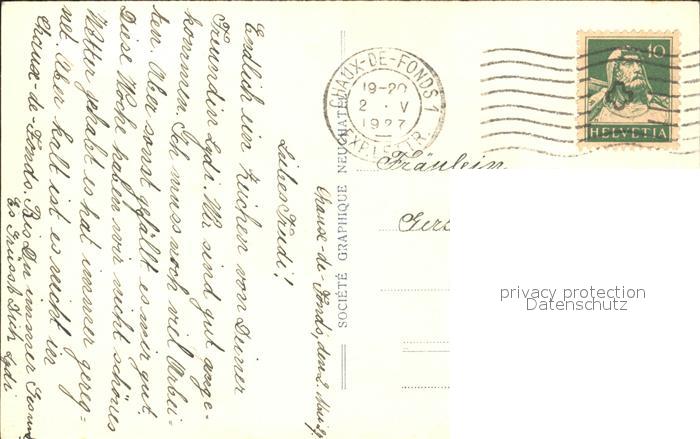 Chaux-de-Fonds, den 2. Mai 27
Liebes Trudi!
Endlich ein Zeichen von Deiner
Freundin Lydi. Wir sind gut ange-
kommen. Ich muss noch viel Arbei-
ten. Aber sonst gefällt es mir gut.
Diese Woche haben wir nicht schönes
Wetter gehabt es hat immer gereg-
net. Aber kalt ist es nicht in
Chaux-de-Fonds. Bis Du immer Gesund
Es Grüsst Dich Lydi
SOCIÉTÉ GRAPHIQUE NEUCHATEL
CHAUX-DE-FONDS 1
19-20
2 . V
1927
EXP. LETTR.
10
HELVETIA
Fräulein
privacy protection
Datenschutz